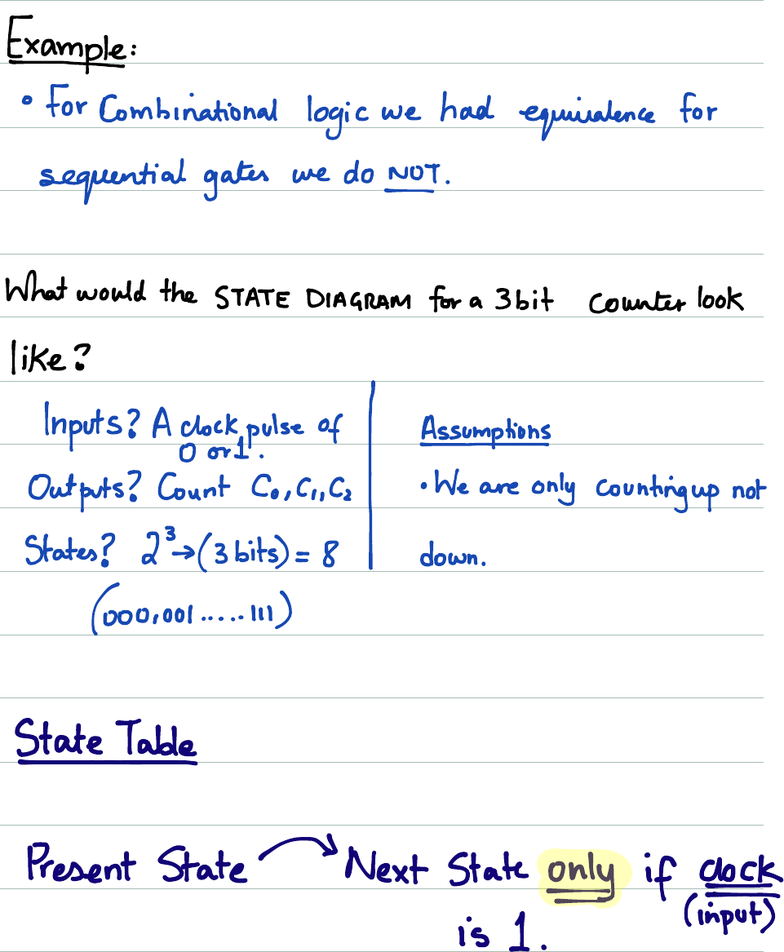 Example:
• For Combinational logic we had equivalence for
sequential gates we do NOT.
What would the STATE DIAGRAM for a 3bit counter look
like?
Inputs? A clock pulse of
0 or 1.
Outputs? Count C₀, C₁, C₂
States? 2³→(3 bits) = 8
(000,001.....111)
Assumptions
• We are only counting up not
down.
State Table
Present State → Next State only if clock
(input)
is 1.